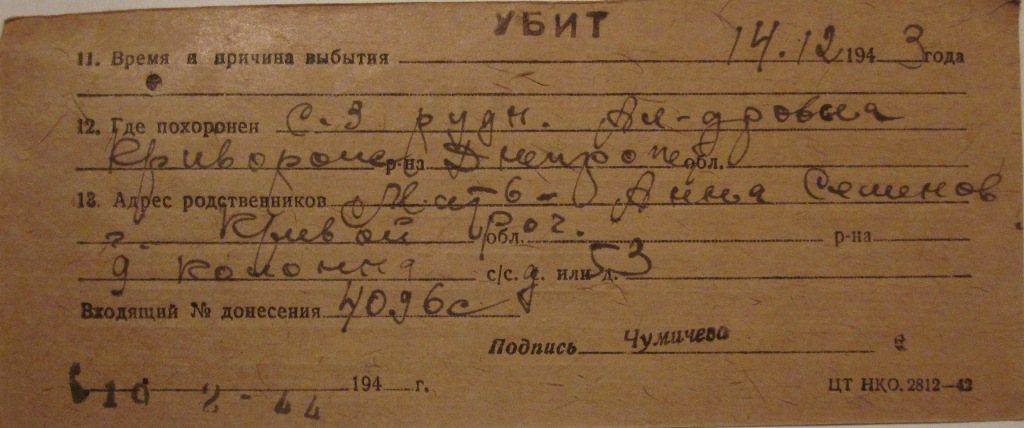 УБИТ
11. Время и причина выбытия 14.12 1943 года
12. Где похоронен С-З рудн. Ал-дровка
Криворожс р-на Днепропе обл.
13. Адрес родственников Мать - Анна Семенов
г. Кривой Рог. обл. р-на
9 колонна с/с. д. или д. 53
Входящий № донесения 4096с
Подпись Чумичева
10 2-44 194 г. ЦТ НКО. 2812—42